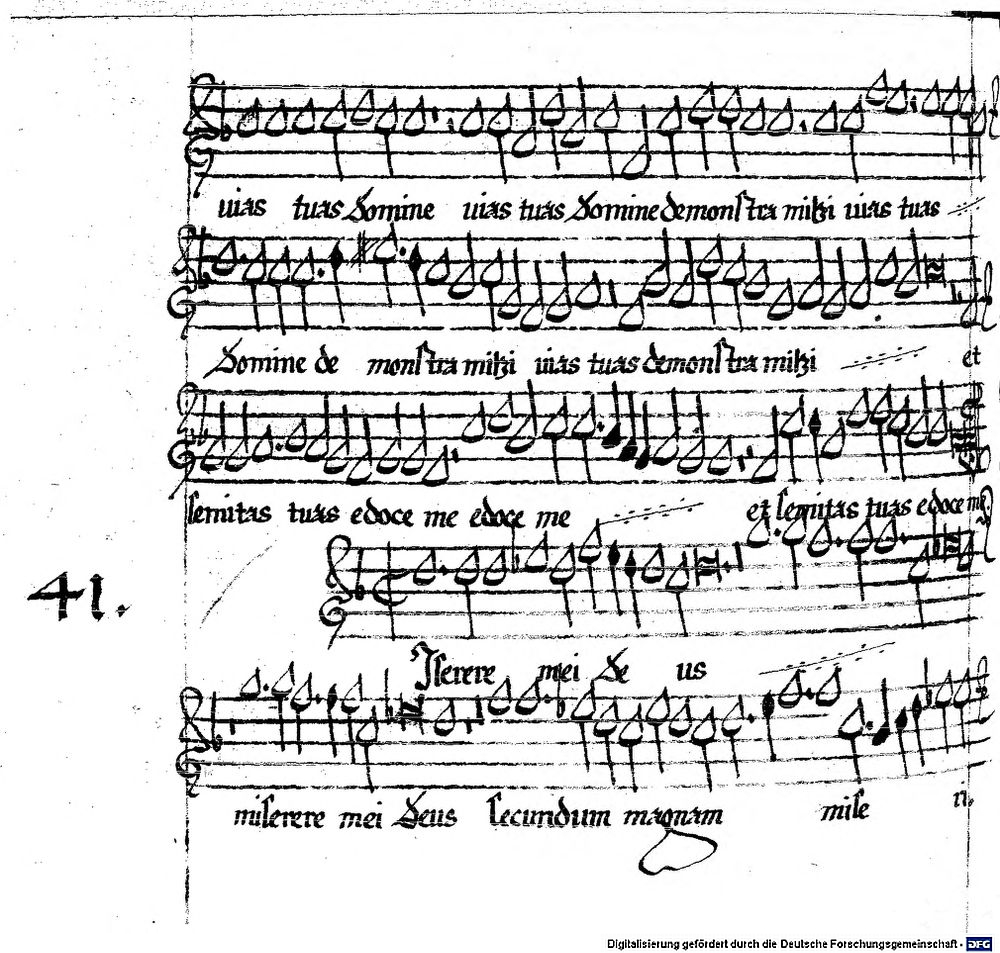 uias tuas Domine uias tuas Domine demonstra mihi uias tuas
Domine de monstra mihi uias tuas demonstra mihi et
semitas tuas edoce me edoce me et semitas tuas edoce me.
41.
Iserere mei De us
miserere mei Deus secundum magnam mise ri,
Digitalisierung gefördert durch die Deutsche Forschungsgemeinschaft - DFG